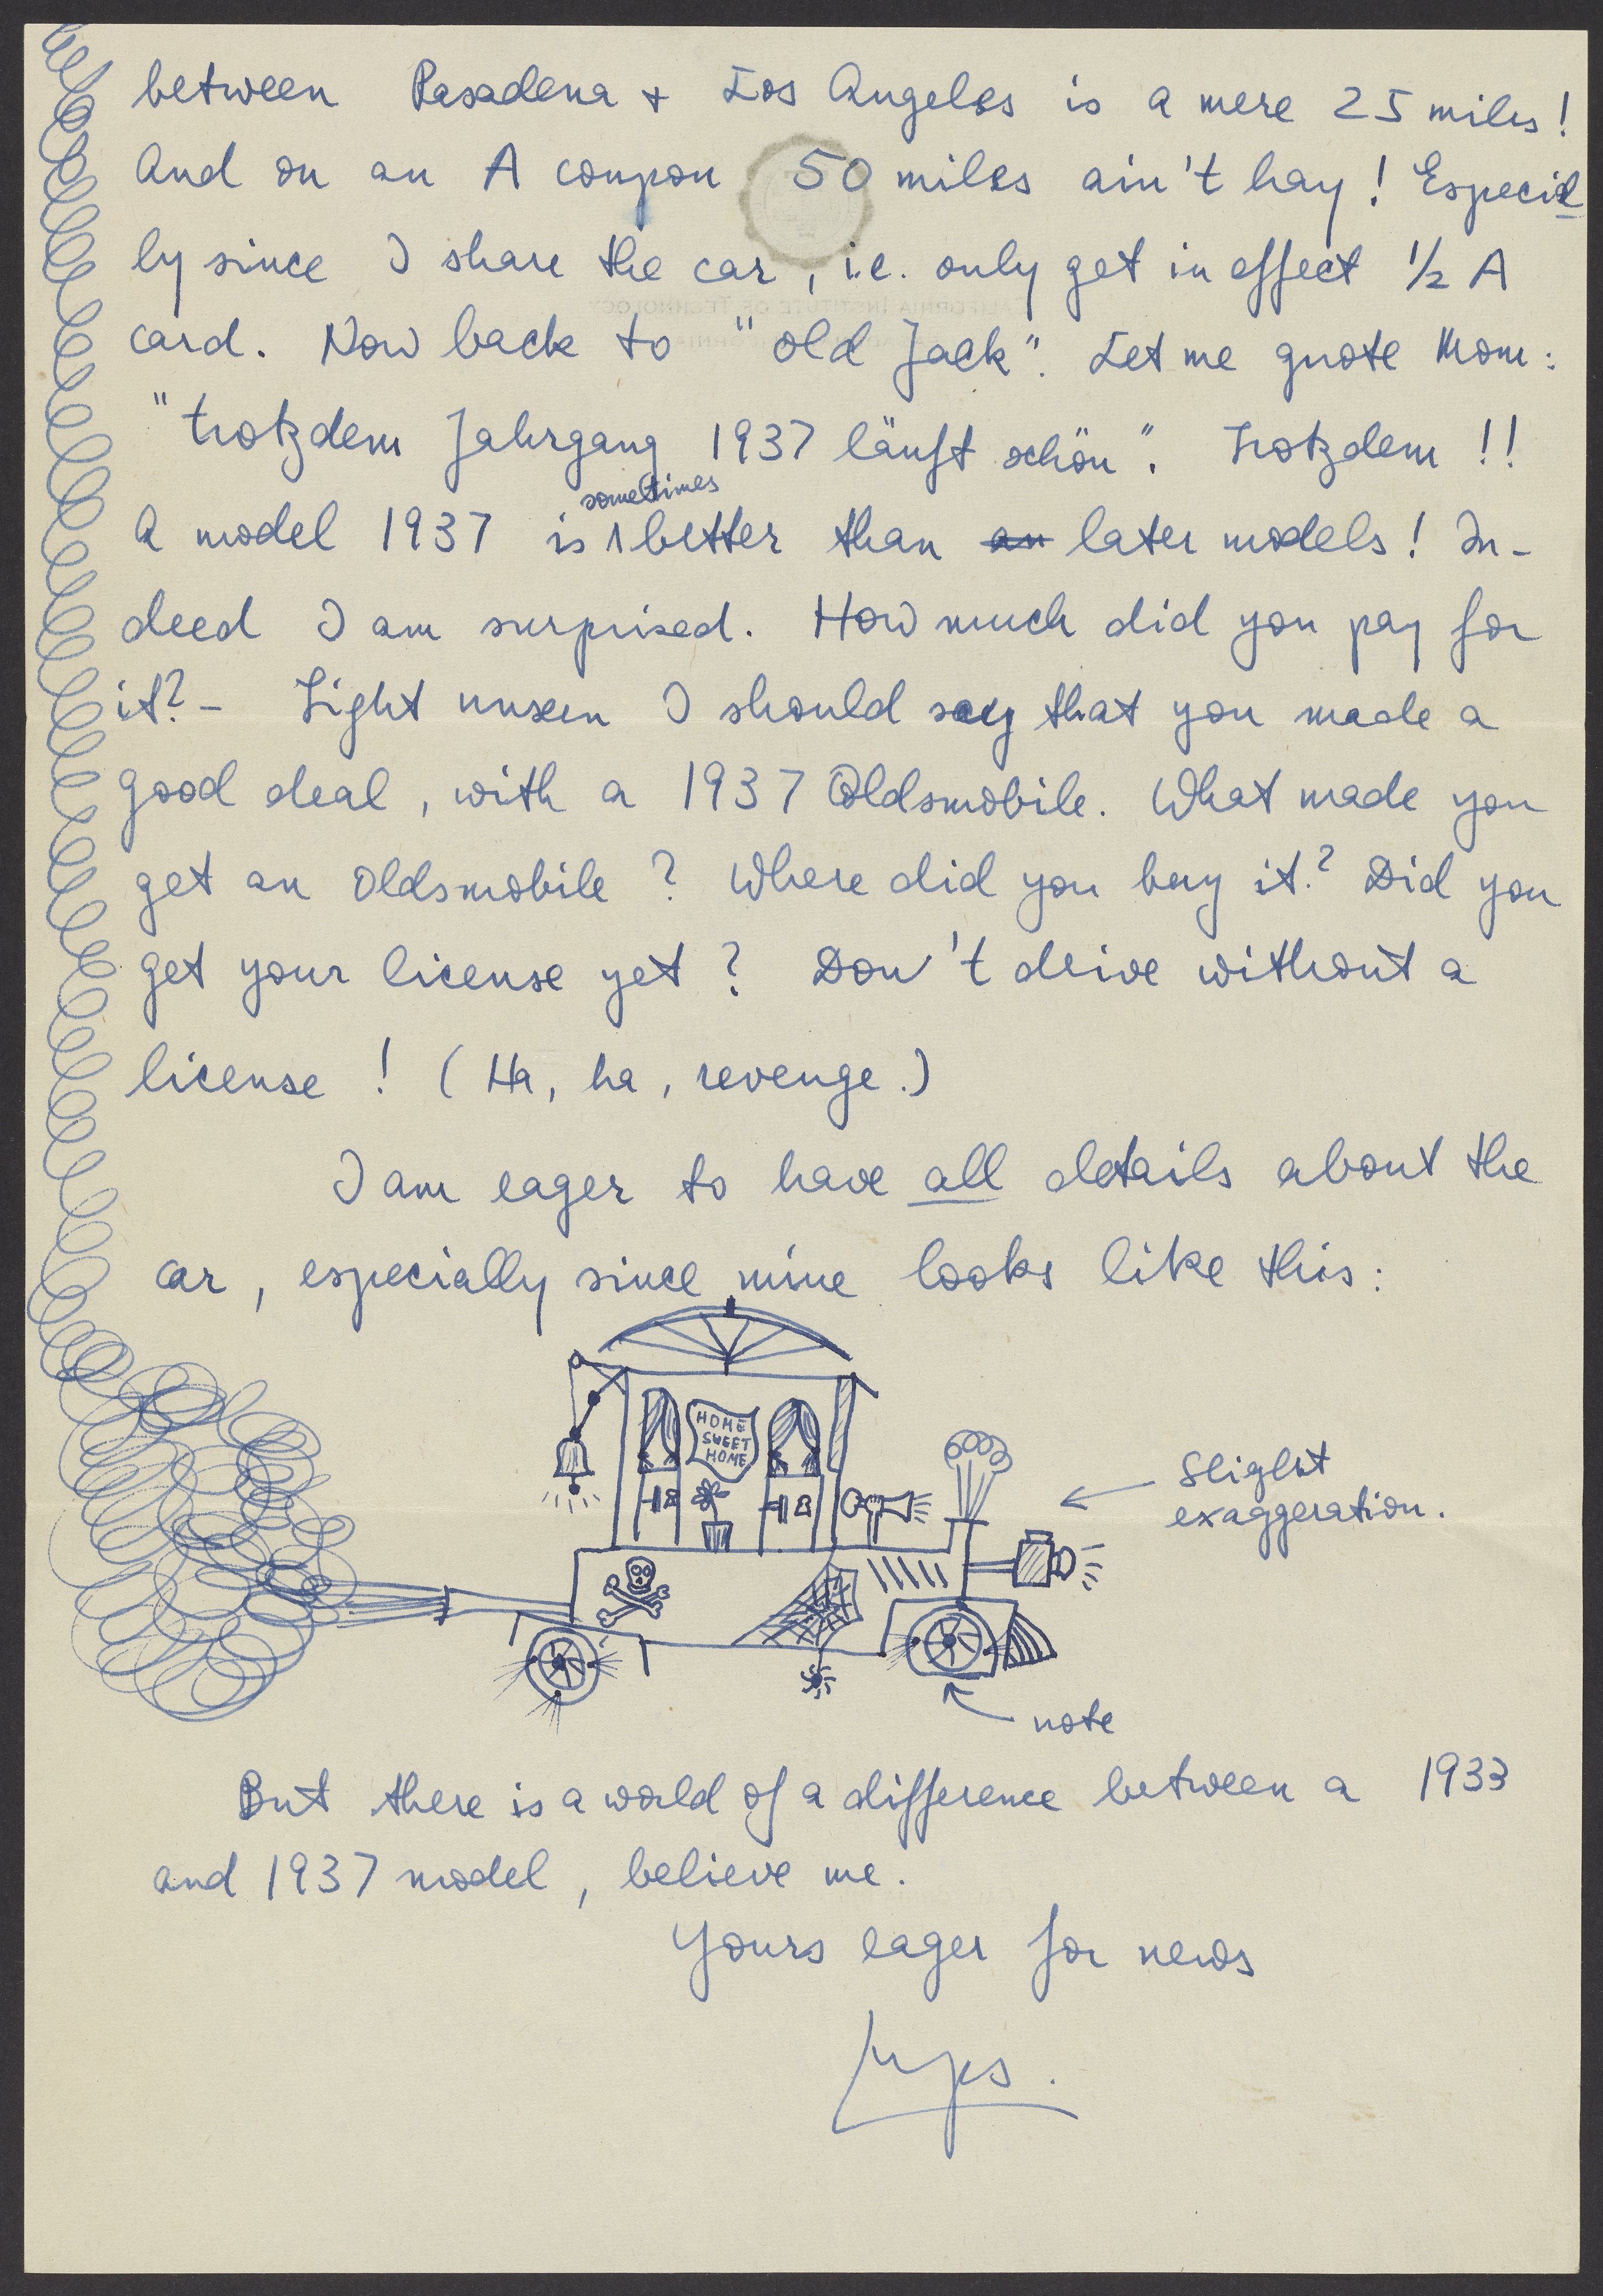 between Pasadena + Los Angeles is a mere 25 miles!
And on an A coupon 50 miles ain't hay! Especial
ly since I share the car, i.e. only get in effect ½ A
card. Now back to "old Jack". Let me quote Mom:
"trotzdem Jahrgang 1937 läuft schön". Trotzdem!!
sometimes
A model 1937 is better than an later models! In-
deed I am surprised. How much did you pay for
it? – Sight unseen I should say that you made a
good deal, with a 1937 Oldsmobile. What made you
get an Oldsmobile? Where did you buy it? Did you
get your license yet? Don't drive without a
license! (Ha, ha, revenge.)
I am eager to have all details about the
car, especially since mine looks like this:
HOME
SWEET
HOME
Slight
exaggeration.
note
But there is a world of a difference between a 1933
and 1937 model, believe me.
Yours eager for news
CALIFORNIA INSTITUTE OF TECHNOLOGY